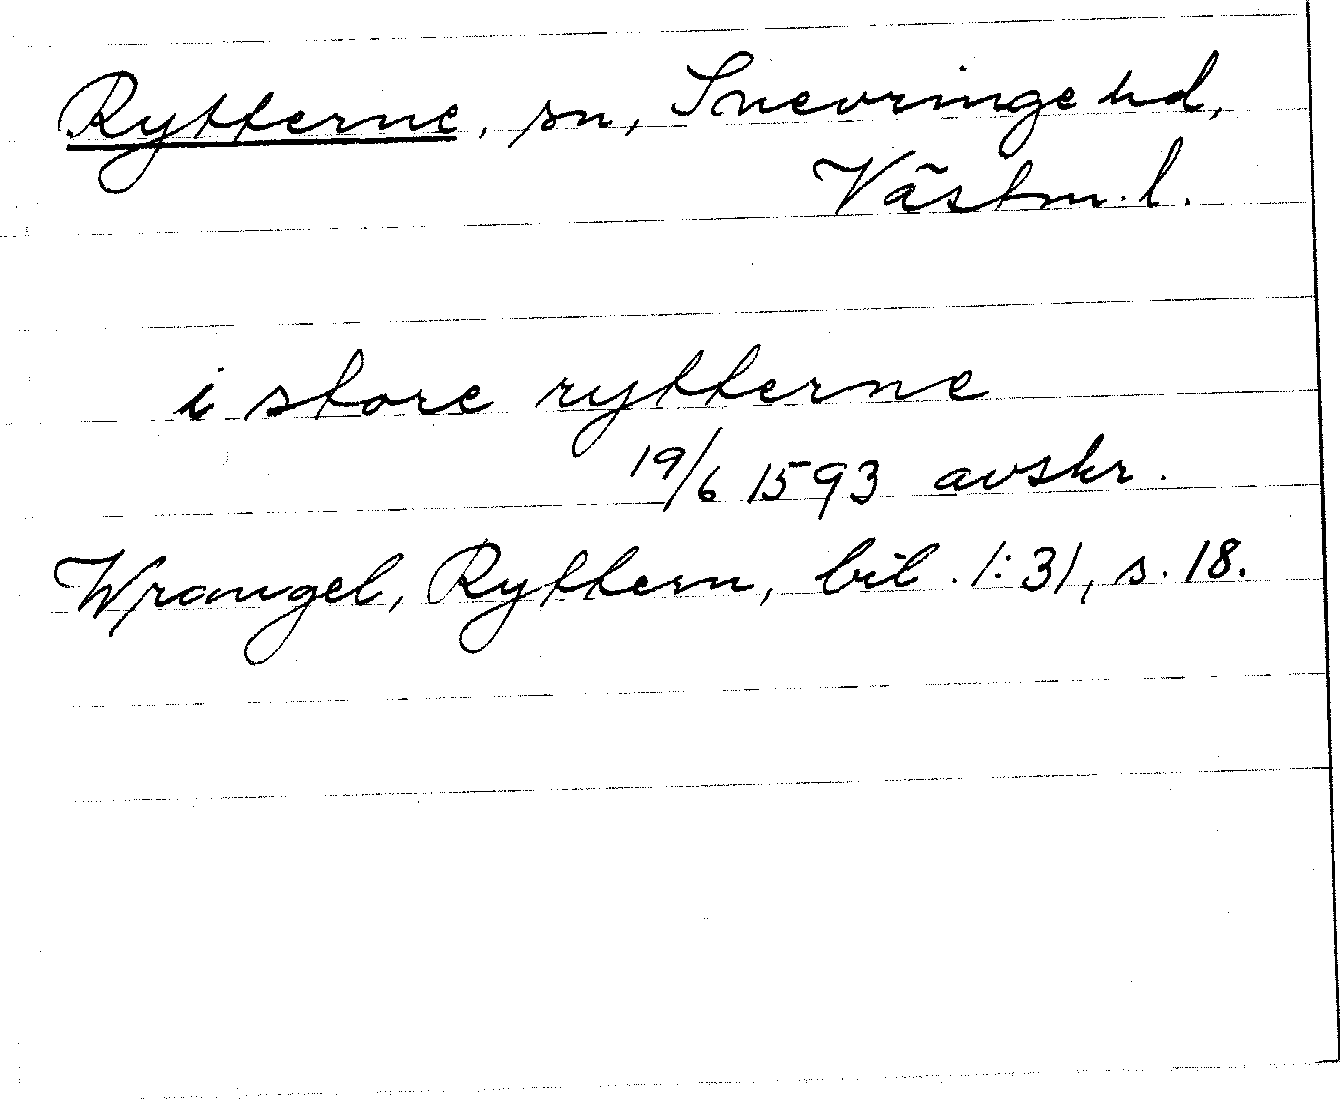 Rytterne, sn, Snevringe hd,
Västm. l.
i store rytterne
19/6 1593 avskr.
Wrangel, Ryttern, bil. 1:31, s. 18.